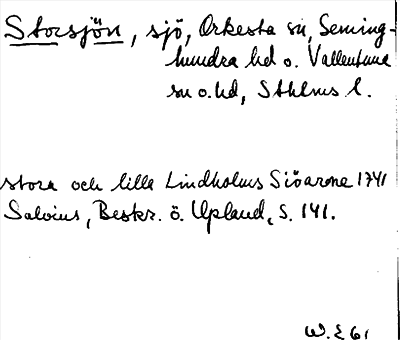 Storsjön, sjö, Orkesta sn, Seming-
hundra hd o. Vallentuna
sn o. hd, Sthlms l.
stora och lilla Lindholms Siöarone 1741
Salvius, Beskr. ö. Upland, S. 141.
W. E 61